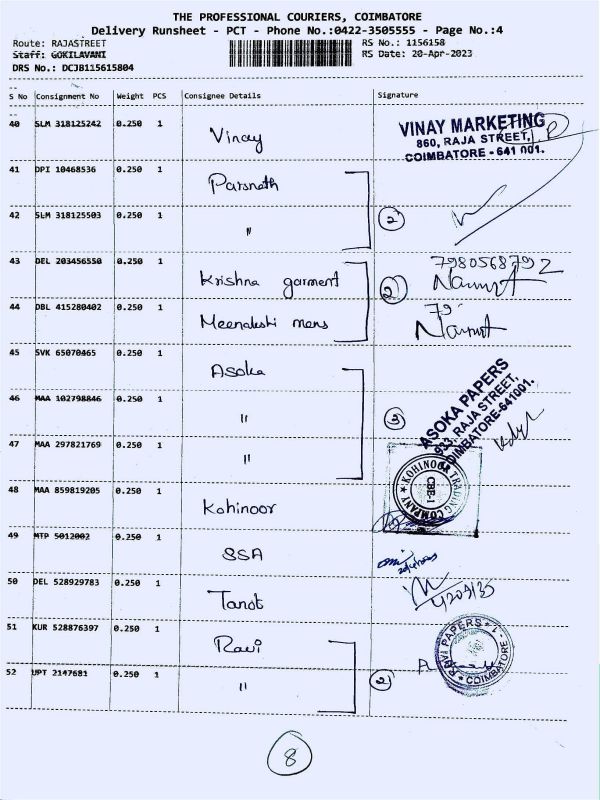 THE PROFESSIONAL COURIERS, COIMBATORE
Delivery Runsheet - PCT - Phone No.:0422-3505555 - Page No.:4
Route: RAJASTREET RS No.: 1156158
Staff: GOKILAVANI RS Date: 20-Apr-2023
DRS No.: DCJB115615804
S No Consignment No Weight PCS Consignee Details Signature
40 SLM 318125242 0.250 1 Vinay
VINAY MARKETING
860, RAJA STREET,
COIMBATORE - 641 001.
41 DPI 10468536 0.250 1 Parsnath
42 SLM 318125503 0.250 1 〃 2
43 DEL 203456550 0.250 1 Krishna garment 2 7980568792
44 DBL 415280402 0.250 1 Meenakshi mens 79
45 SVK 65070465 0.250 1 Asoka
46 MAA 102798846 0.250 1 〃 3
ASOKA PAPERS
933, RAJA STREET,
COIMBATORE-641001.
47 MAA 297821769 0.250 1 〃
48 MAA 859819205 0.250 1 Kohinoor
KOHINOOR TRADING COMPANY
CBE-1
49 MTP 5012002 0.250 1 SSA
50 DEL 528929783 0.250 1 Tanot
51 KUR 528876397 0.250 1 Ravi
52 UPT 2147681 0.250 1 〃 2
PAPERS
COIMBATORE - 1
8